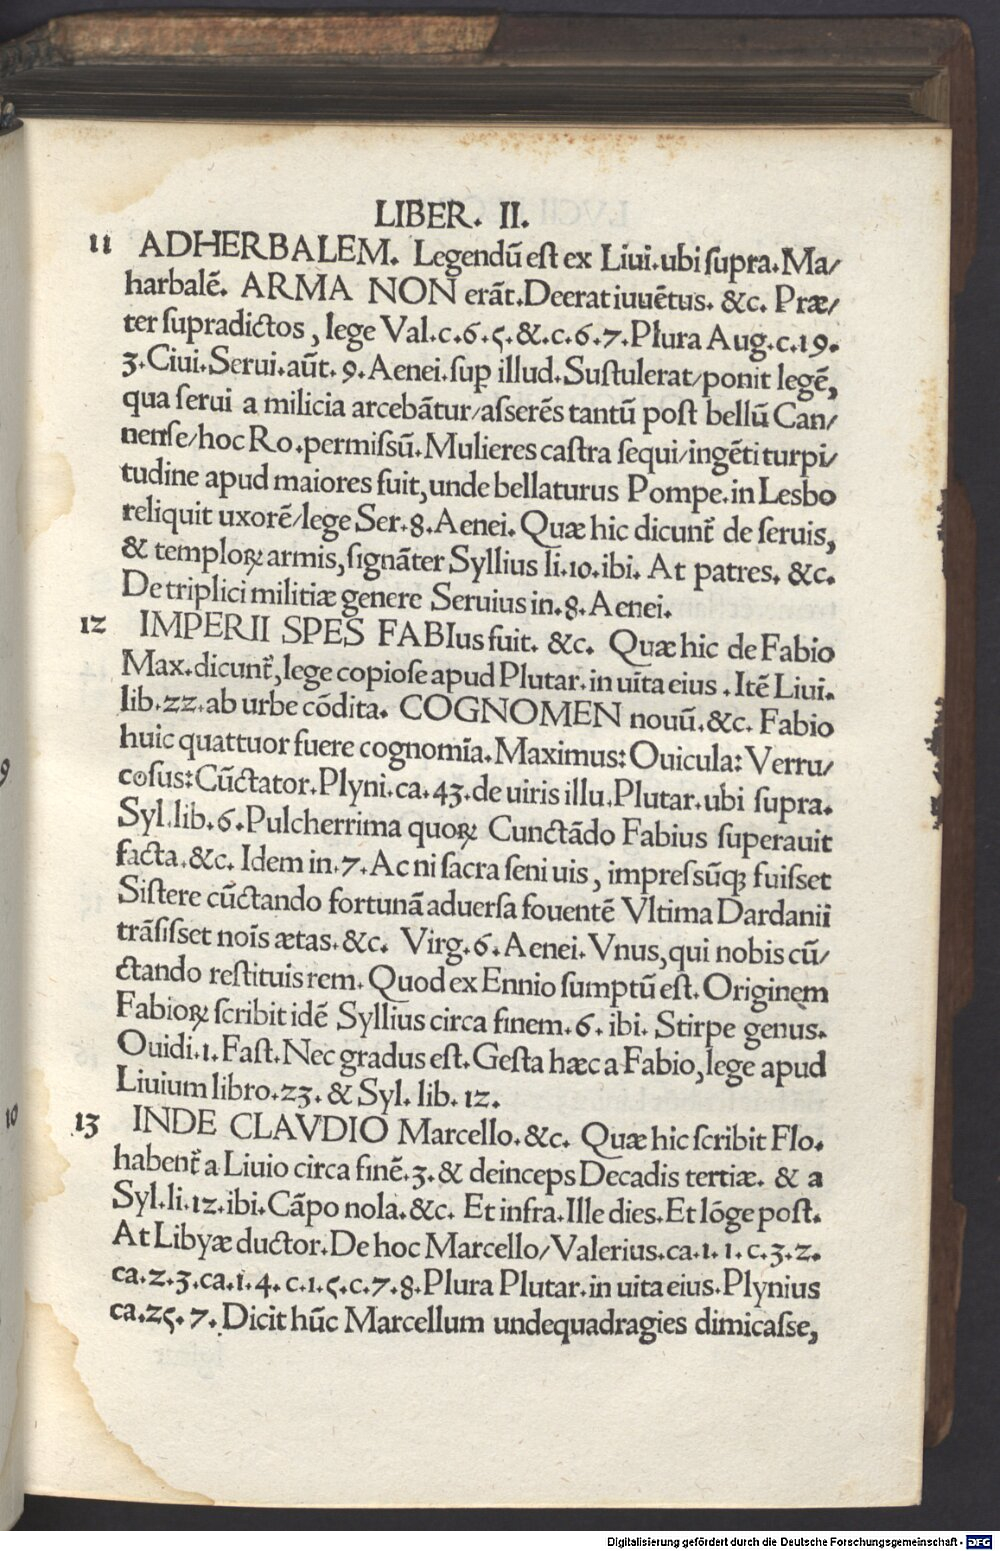 LIBER. II.
11 ADHERBALEM. Legendū est ex Liui.ubi supra.Ma/
harbalē. ARMA NON erāt.Deerat iuuētus. &c. Præ/
ter supradictos, lege Val.c.6.5.&.c.6.7.Plura Aug.c.19.
3.Ciui.Serui.aūt.9.Aenei.sup illud.Sustulerat/ponit legē,
qua serui a milicia arcebātur/asserēs tantū post bellū Can/
nense/hoc Ro.permissū.Mulieres castra sequi/ingēti turpi/
tudine apud maiores fuit,unde bellaturus Pompe.in Lesbo
reliquit uxorē/lege Ser.8.Aenei. Quæ hic dicunt᷑ de seruis,
& temploꝝ armis,signāter Syllius li.10.ibi. At patres. &c.
De triplici militiæ genere Seruius in.8.Aenei.
12 IMPERII SPES FABIus fuit. &c. Quæ hic de Fabio
Max.dicunt᷑,lege copiose apud Plutar.in uita eius .Itē Liui.
lib.22.ab urbe cōdita. COGNOMEN nouū.&c. Fabio
huic quattuor fuere cognomīa.Maximus: Ouicula: Verru/
cosus:Cūctator.Plyni.ca.43.de uiris illu.Plutar.ubi supra.
Syl.lib.6.Pulcherrima quoꝝ Cunctādo Fabius superauit
facta.&c. Idem in.7.Ac ni sacra seni uis, impressūqꝫ fuisset
Sistere cūctando fortunā aduersa fouentē Vltima Dardanii
trāsisset noīs ætas.&c. Virg.6.Aenei.Vnus,qui nobis cū/
ctando restituis rem.Quod ex Ennio sumptū est.Originem
Fabioꝝ scribit idē Syllius circa finem.6. ibi. Stirpe genus.
Ouidi.1.Fast.Nec gradus est.Gesta hæc a Fabio,lege apud
Liuium libro.23.& Syl.lib.12.
13 INDE CLAVDIO Marcello.&c. Quæ hic scribit Flo.
habent᷑ a Liuio circa finē.3.& deinceps Decadis tertiæ. & a
Syl.li.12.ibi.Cāpo nola.&c. Et infra.Ille dies.Et lōge post.
At Libyæ ductor.De hoc Marcello/Valerius.ca.1.1.c.3.2.
ca.2.3.ca.1.4.c.1.5.c.7.8.Plura Plutar.in uita eius.Plynius
ca.25.7.Dicit hūc Marcellum undequadragies dimicasse,
9
10
Digitalisierung gefördert durch die Deutsche Forschungsgemeinschaft - DFG